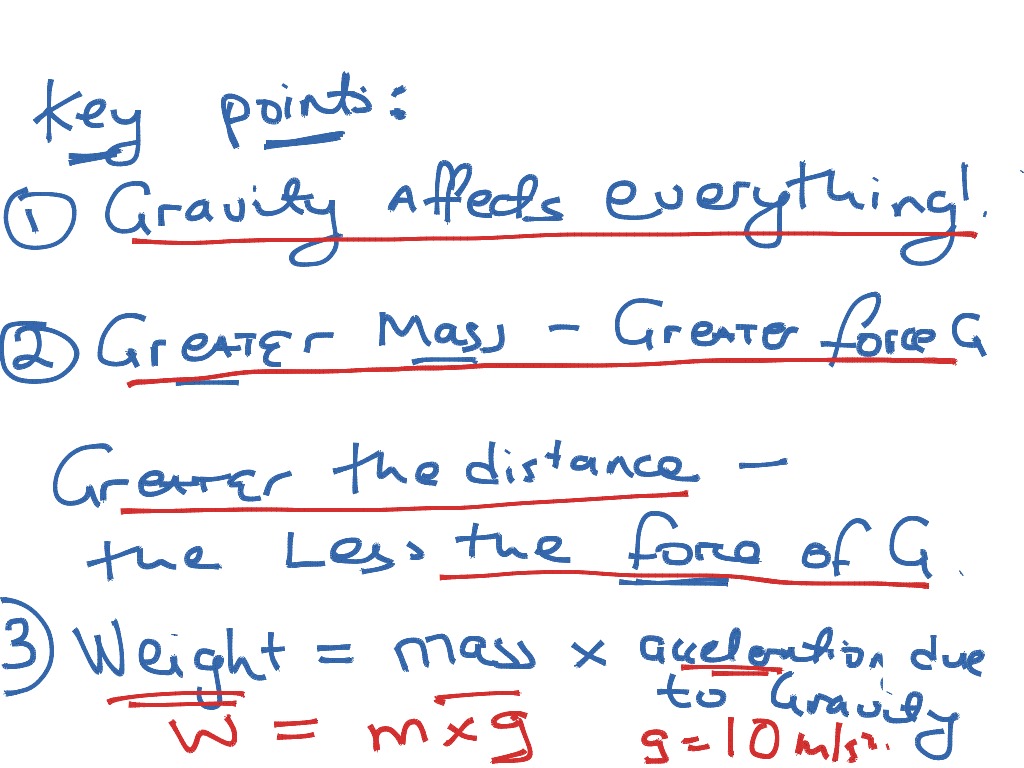 Key points:
① Gravity Affects everything!.
② Greater Mass - Greater force G
Greater the distance -
the Less the force of G.
③ Weight = mass × acceleration due
to Gravity
W = m × g g = 10 m/s².